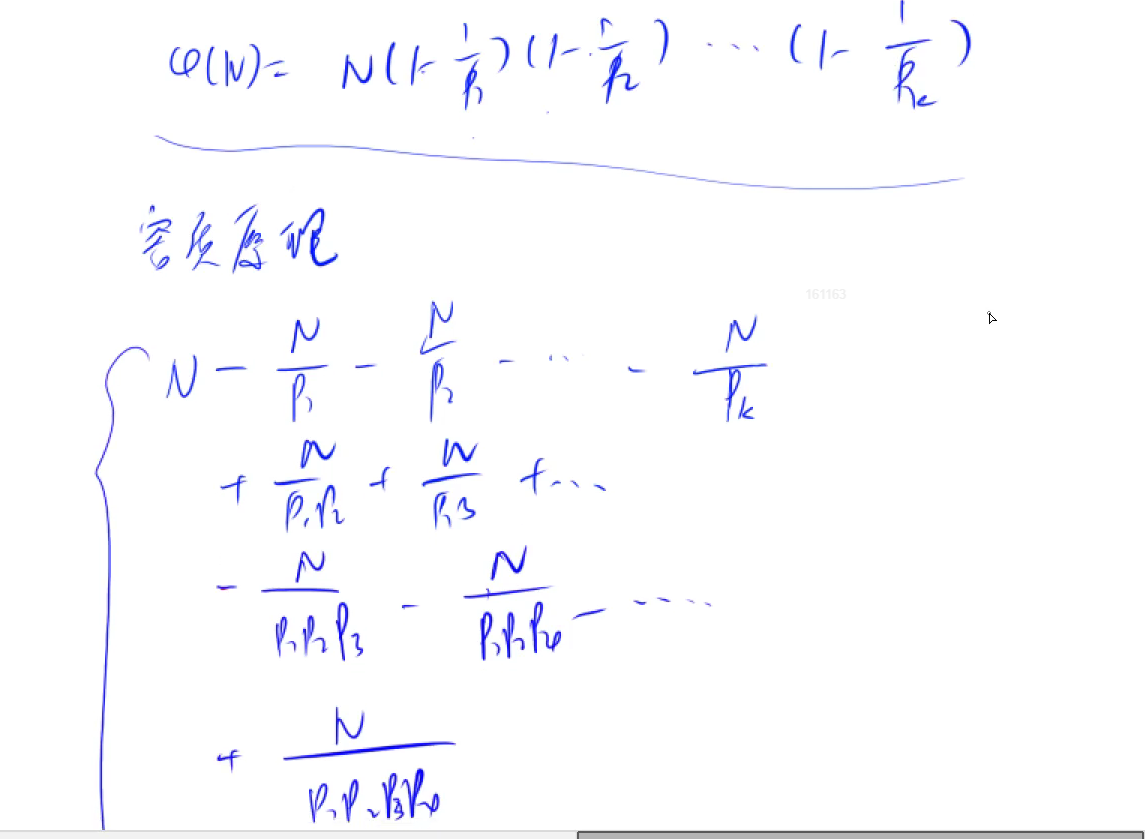 φ(N)= N(1-1/P1)(1-1/P2) ... (1-1/Pk)
容质原理
161163
N - N/P1 - N/P2 - ... - N/Pk
+ N/P1P2 + N/P1P3 + ...
- N/P1P2P3 - N/P1P2P4 - ....
+ N/P1P2P3P4